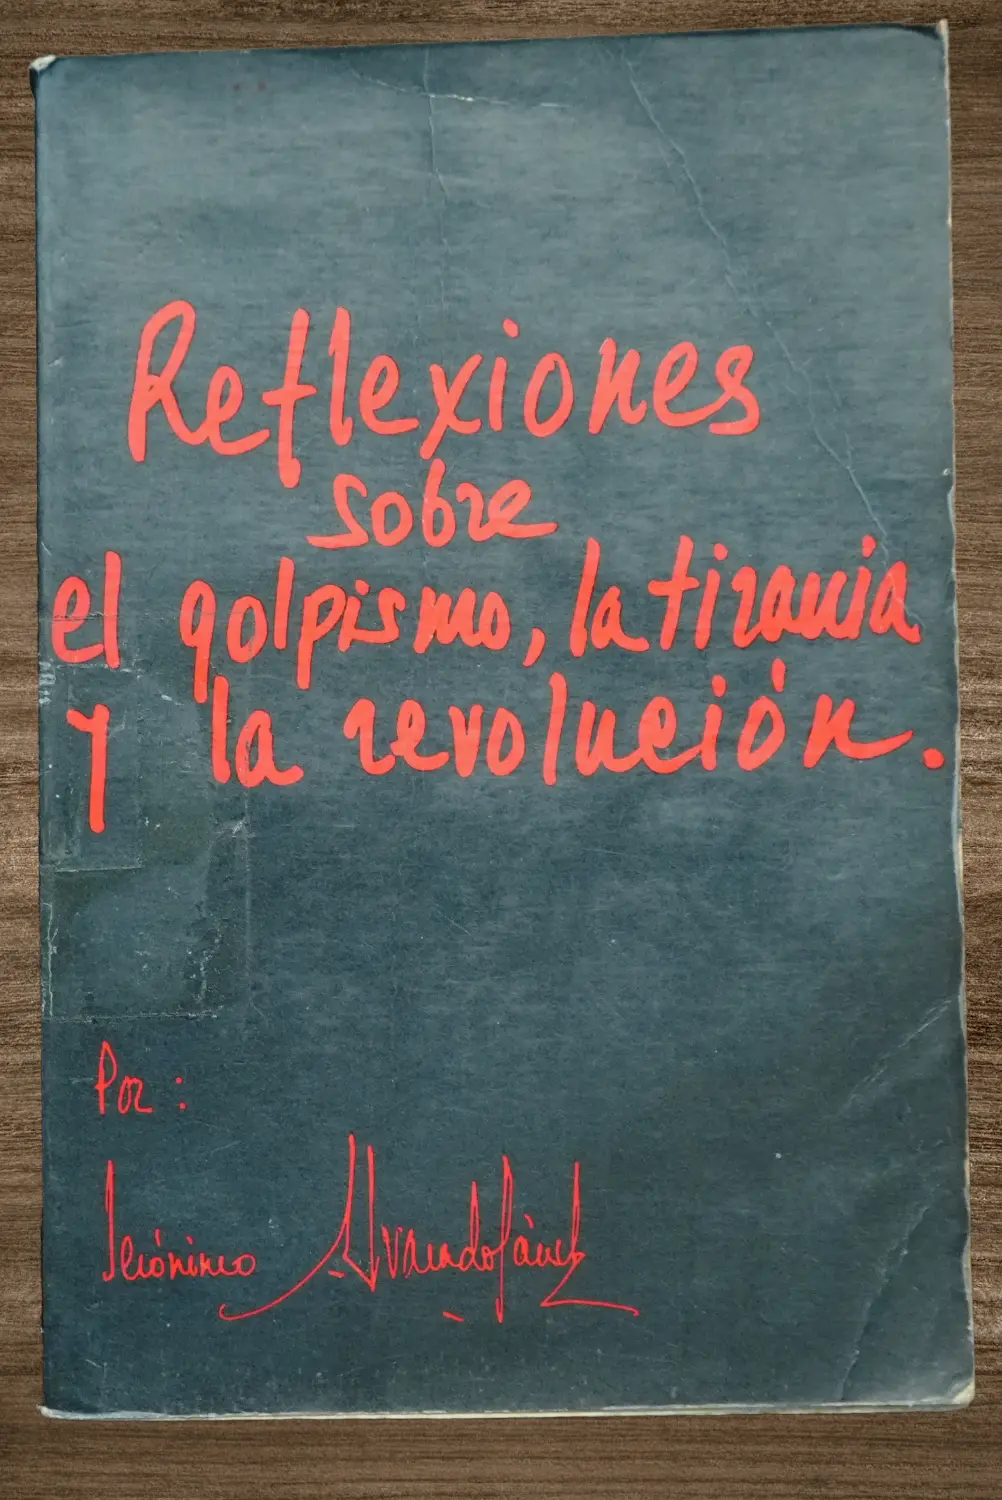 Reflexiones
sobre
el golpismo, la tirania
y la revolución.
Por:
Jerónimo